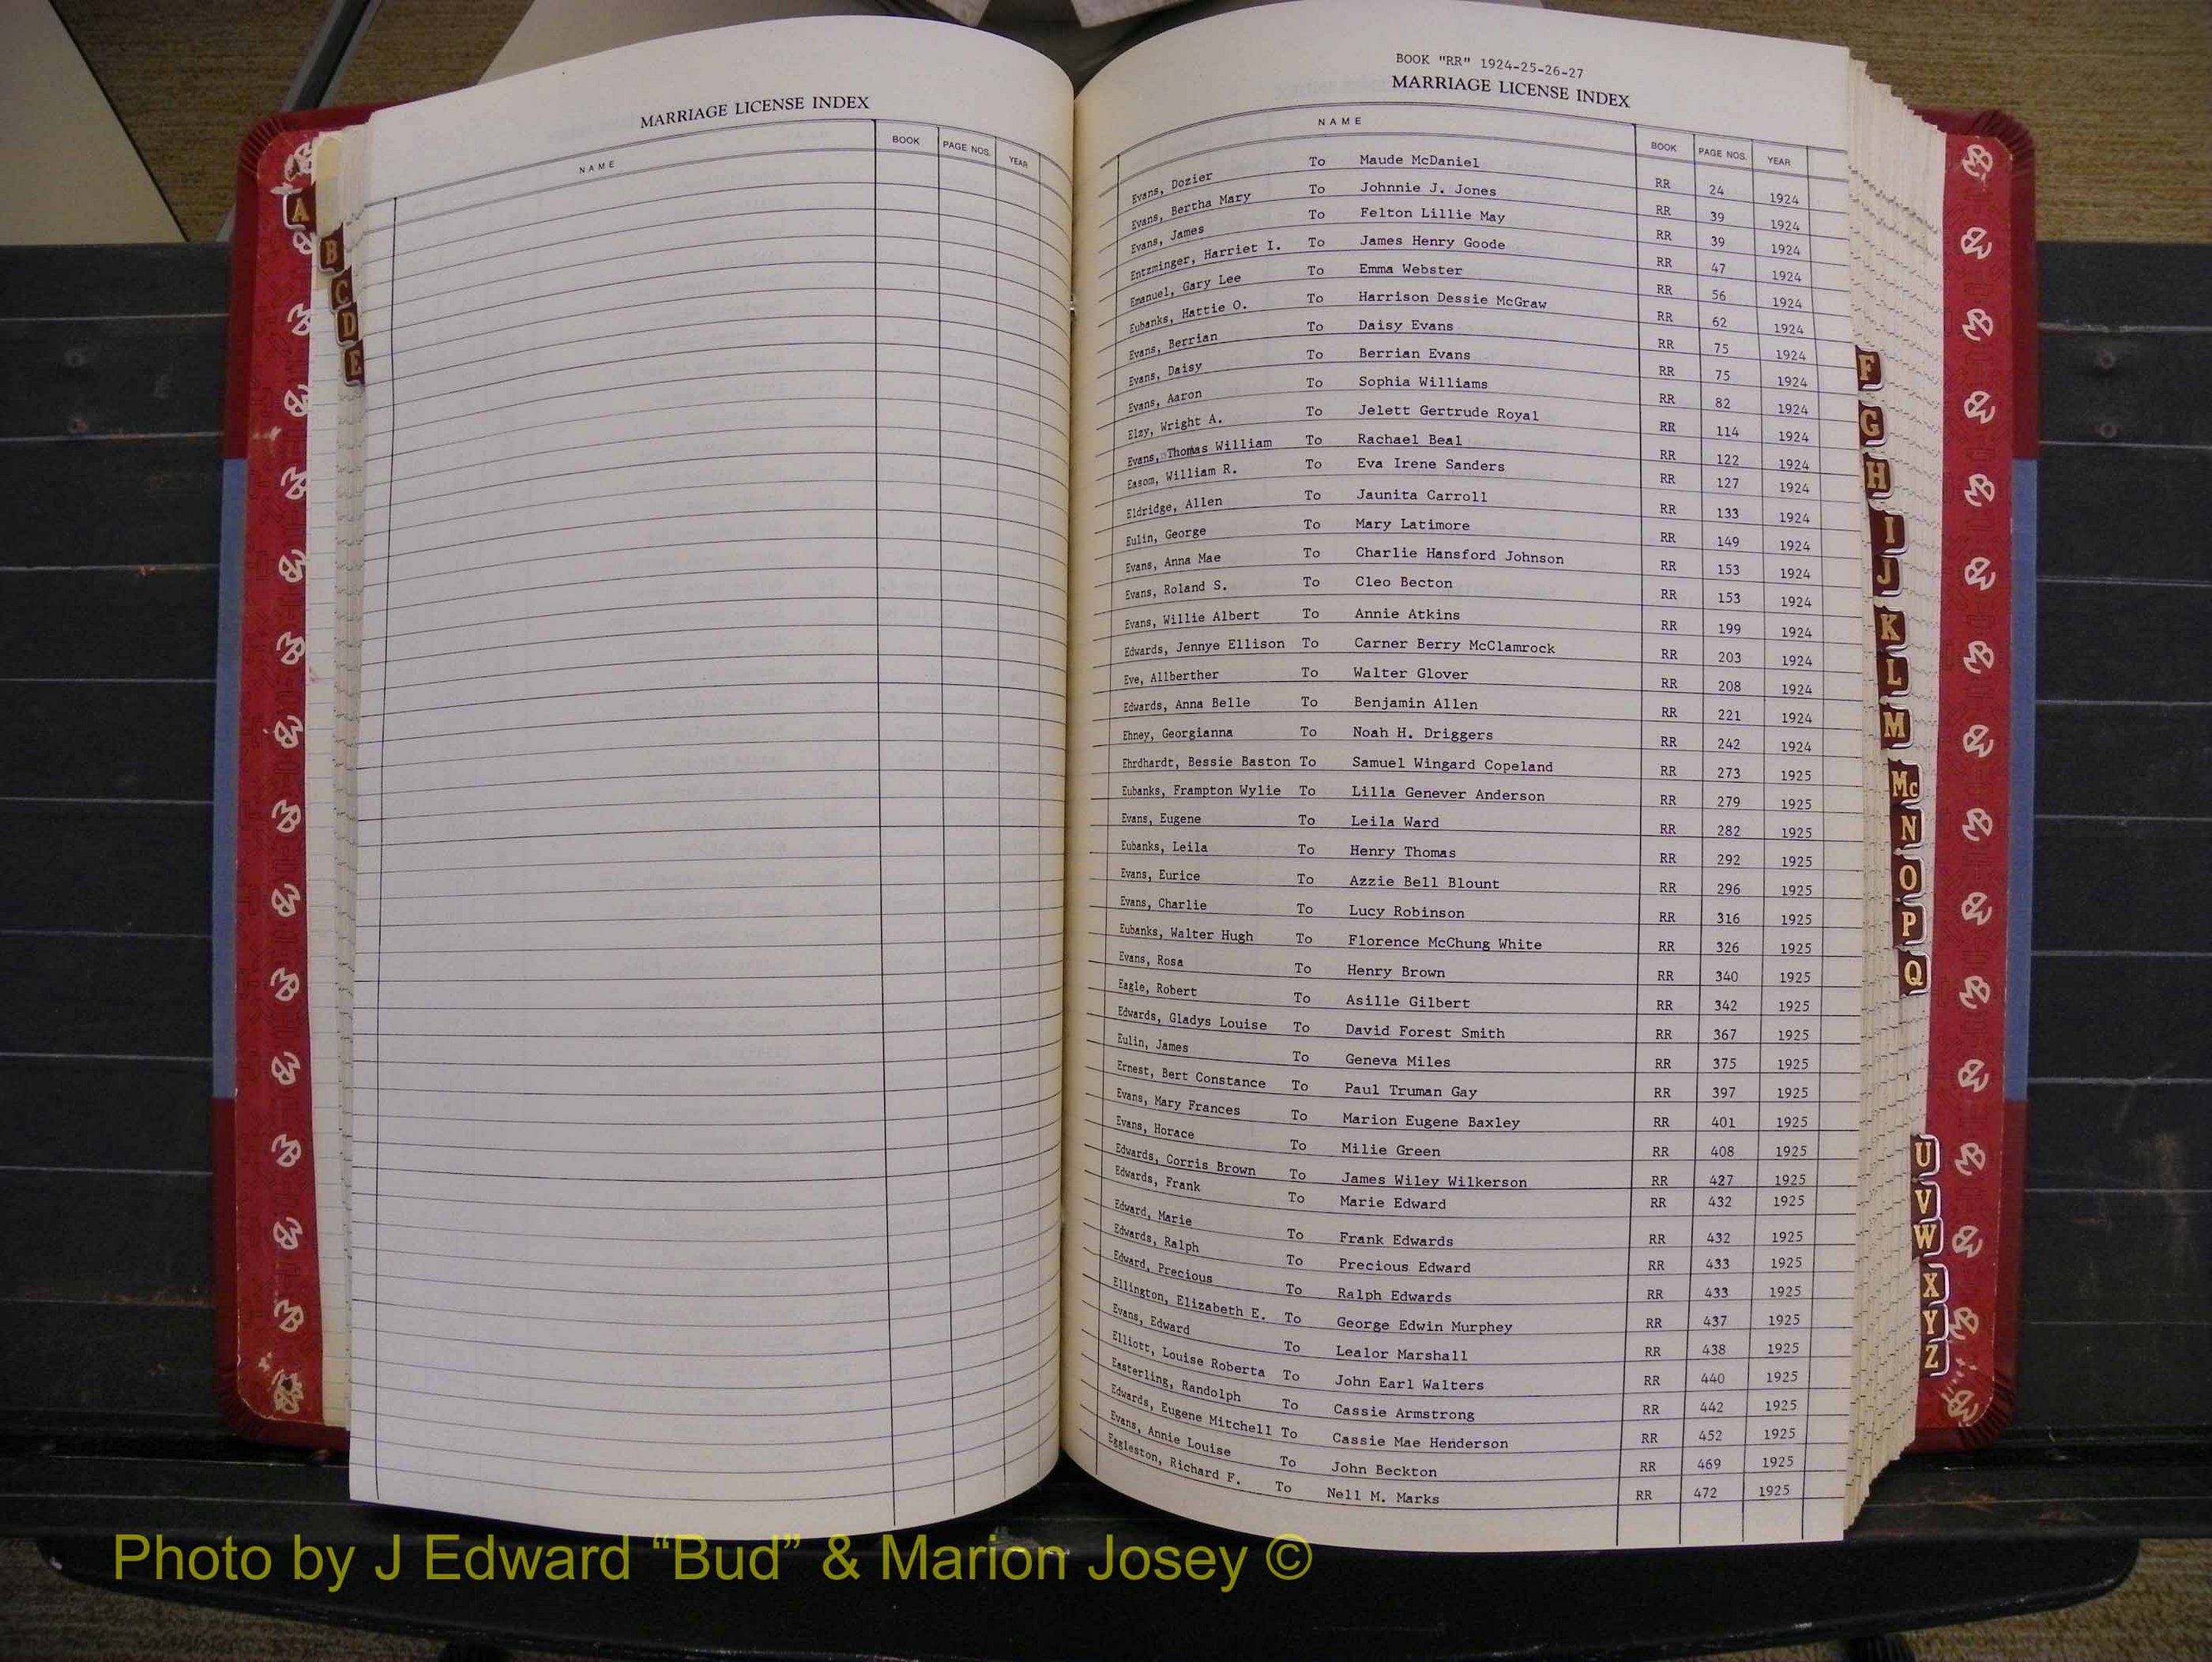 MARRIAGE LICENSE INDEX
NAME BOOK PAGE NOS. YEAR
A
B
C
D
E
BOOK "RR" 1924-25-26-27
MARRIAGE LICENSE INDEX
NAME BOOK PAGE NOS. YEAR
Evans, Dozier To Maude McDaniel RR 24 1924
Evans, Bertha Mary To Johnnie J. Jones RR 39 1924
Evans, James To Felton Lillie May RR 39 1924
Entzminger, Harriet I. To James Henry Goode RR 47 1924
Emanuel, Gary Lee To Emma Webster RR 56 1924
Eubanks, Hattie O. To Harrison Dessie McGraw RR 62 1924
Evans, Berrian To Daisy Evans RR 75 1924
Evans, Daisy To Berrian Evans RR 75 1924
Evans, Aaron To Sophia Williams RR 82 1924
Elzy, Wright A. To Jelett Gertrude Royal RR 114 1924
Evans, Thomas William To Rachael Beal RR 122 1924
Easom, William R. To Eva Irene Sanders RR 127 1924
Eldridge, Allen To Jaunita Carroll RR 133 1924
Eulin, George To Mary Latimore RR 149 1924
Evans, Anna Mae To Charlie Hansford Johnson RR 153 1924
Evans, Roland S. To Cleo Becton RR 153 1924
Evans, Willie Albert To Annie Atkins RR 199 1924
Edwards, Jennye Ellison To Carner Berry McClamrock RR 203 1924
Eve, Allberther To Walter Glover RR 208 1924
Edwards, Anna Belle To Benjamin Allen RR 221 1924
Ehney, Georgianna To Noah H. Driggers RR 242 1924
Ehrdhardt, Bessie Baston To Samuel Wingard Copeland RR 273 1925
Eubanks, Frampton Wylie To Lilla Genever Anderson RR 279 1925
Evans, Eugene To Leila Ward RR 282 1925
Eubanks, Leila To Henry Thomas RR 292 1925
Evans, Eurice To Azzie Bell Blount RR 296 1925
Evans, Charlie To Lucy Robinson RR 316 1925
Eubanks, Walter Hugh To Florence McChung White RR 326 1925
Evans, Rosa To Henry Brown RR 340 1925
Eagle, Robert To Asille Gilbert RR 342 1925
Edwards, Gladys Louise To David Forest Smith RR 367 1925
Eulin, James To Geneva Miles RR 375 1925
Ernest, Bert Constance To Paul Truman Gay RR 397 1925
Evans, Mary Frances To Marion Eugene Baxley RR 401 1925
Evans, Horace To Milie Green RR 408 1925
Edwards, Corris Brown To James Wiley Wilkerson RR 427 1925
Edwards, Frank To Marie Edward RR 432 1925
Edward, Marie To Frank Edwards RR 432 1925
Edwards, Ralph To Precious Edward RR 433 1925
Edward, Precious To Ralph Edwards RR 433 1925
Ellington, Elizabeth E. To George Edwin Murphey RR 437 1925
Evans, Edward To Lealor Marshall RR 438 1925
Elliott, Louise Roberta To John Earl Walters RR 440 1925
Easterling, Randolph To Cassie Armstrong RR 442 1925
Edwards, Eugene Mitchell To Cassie Mae Henderson RR 452 1925
Evans, Annie Louise To John Beckton RR 469 1925
Eggleston, Richard F. To Nell M. Marks RR 472 1925
F
G
H
I
J
K
L
M
Mc
N
O
P
Q
U
V
W
X
Y
Z
Photo by J Edward “Bud” & Marion Josey ©